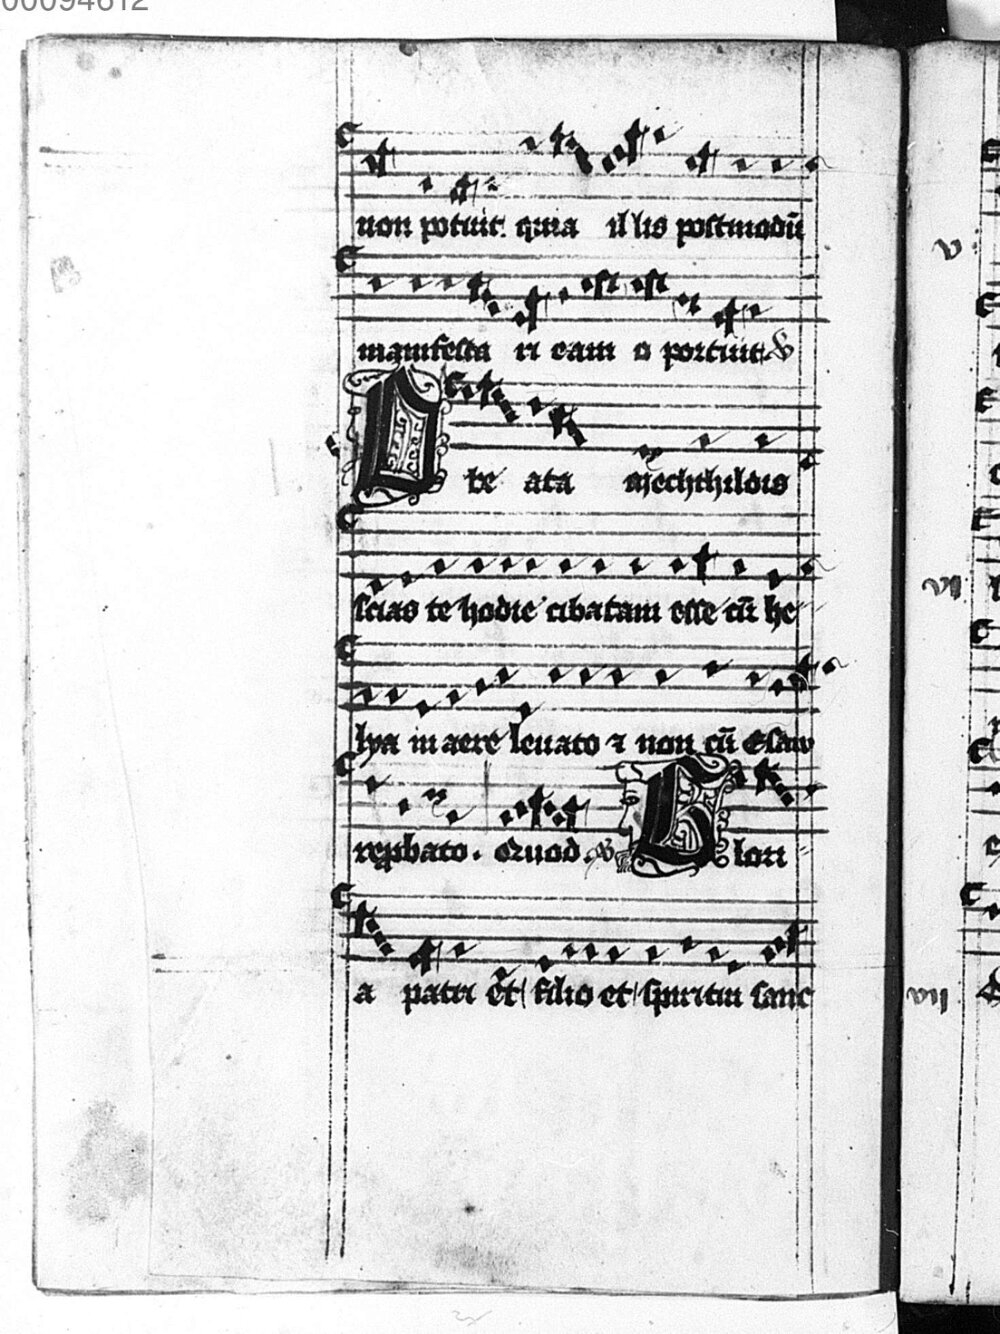 00094612
non potuit. quia il lis postmodū
manifesta ri eam o portuit. V
O be ata mechthildis
scias te hodie cibatam esse cū he
lya in aere leuato ⁊ non cū Esau
rep̱bato. Quod. V G lori
a patri et filio et spiritui sanc